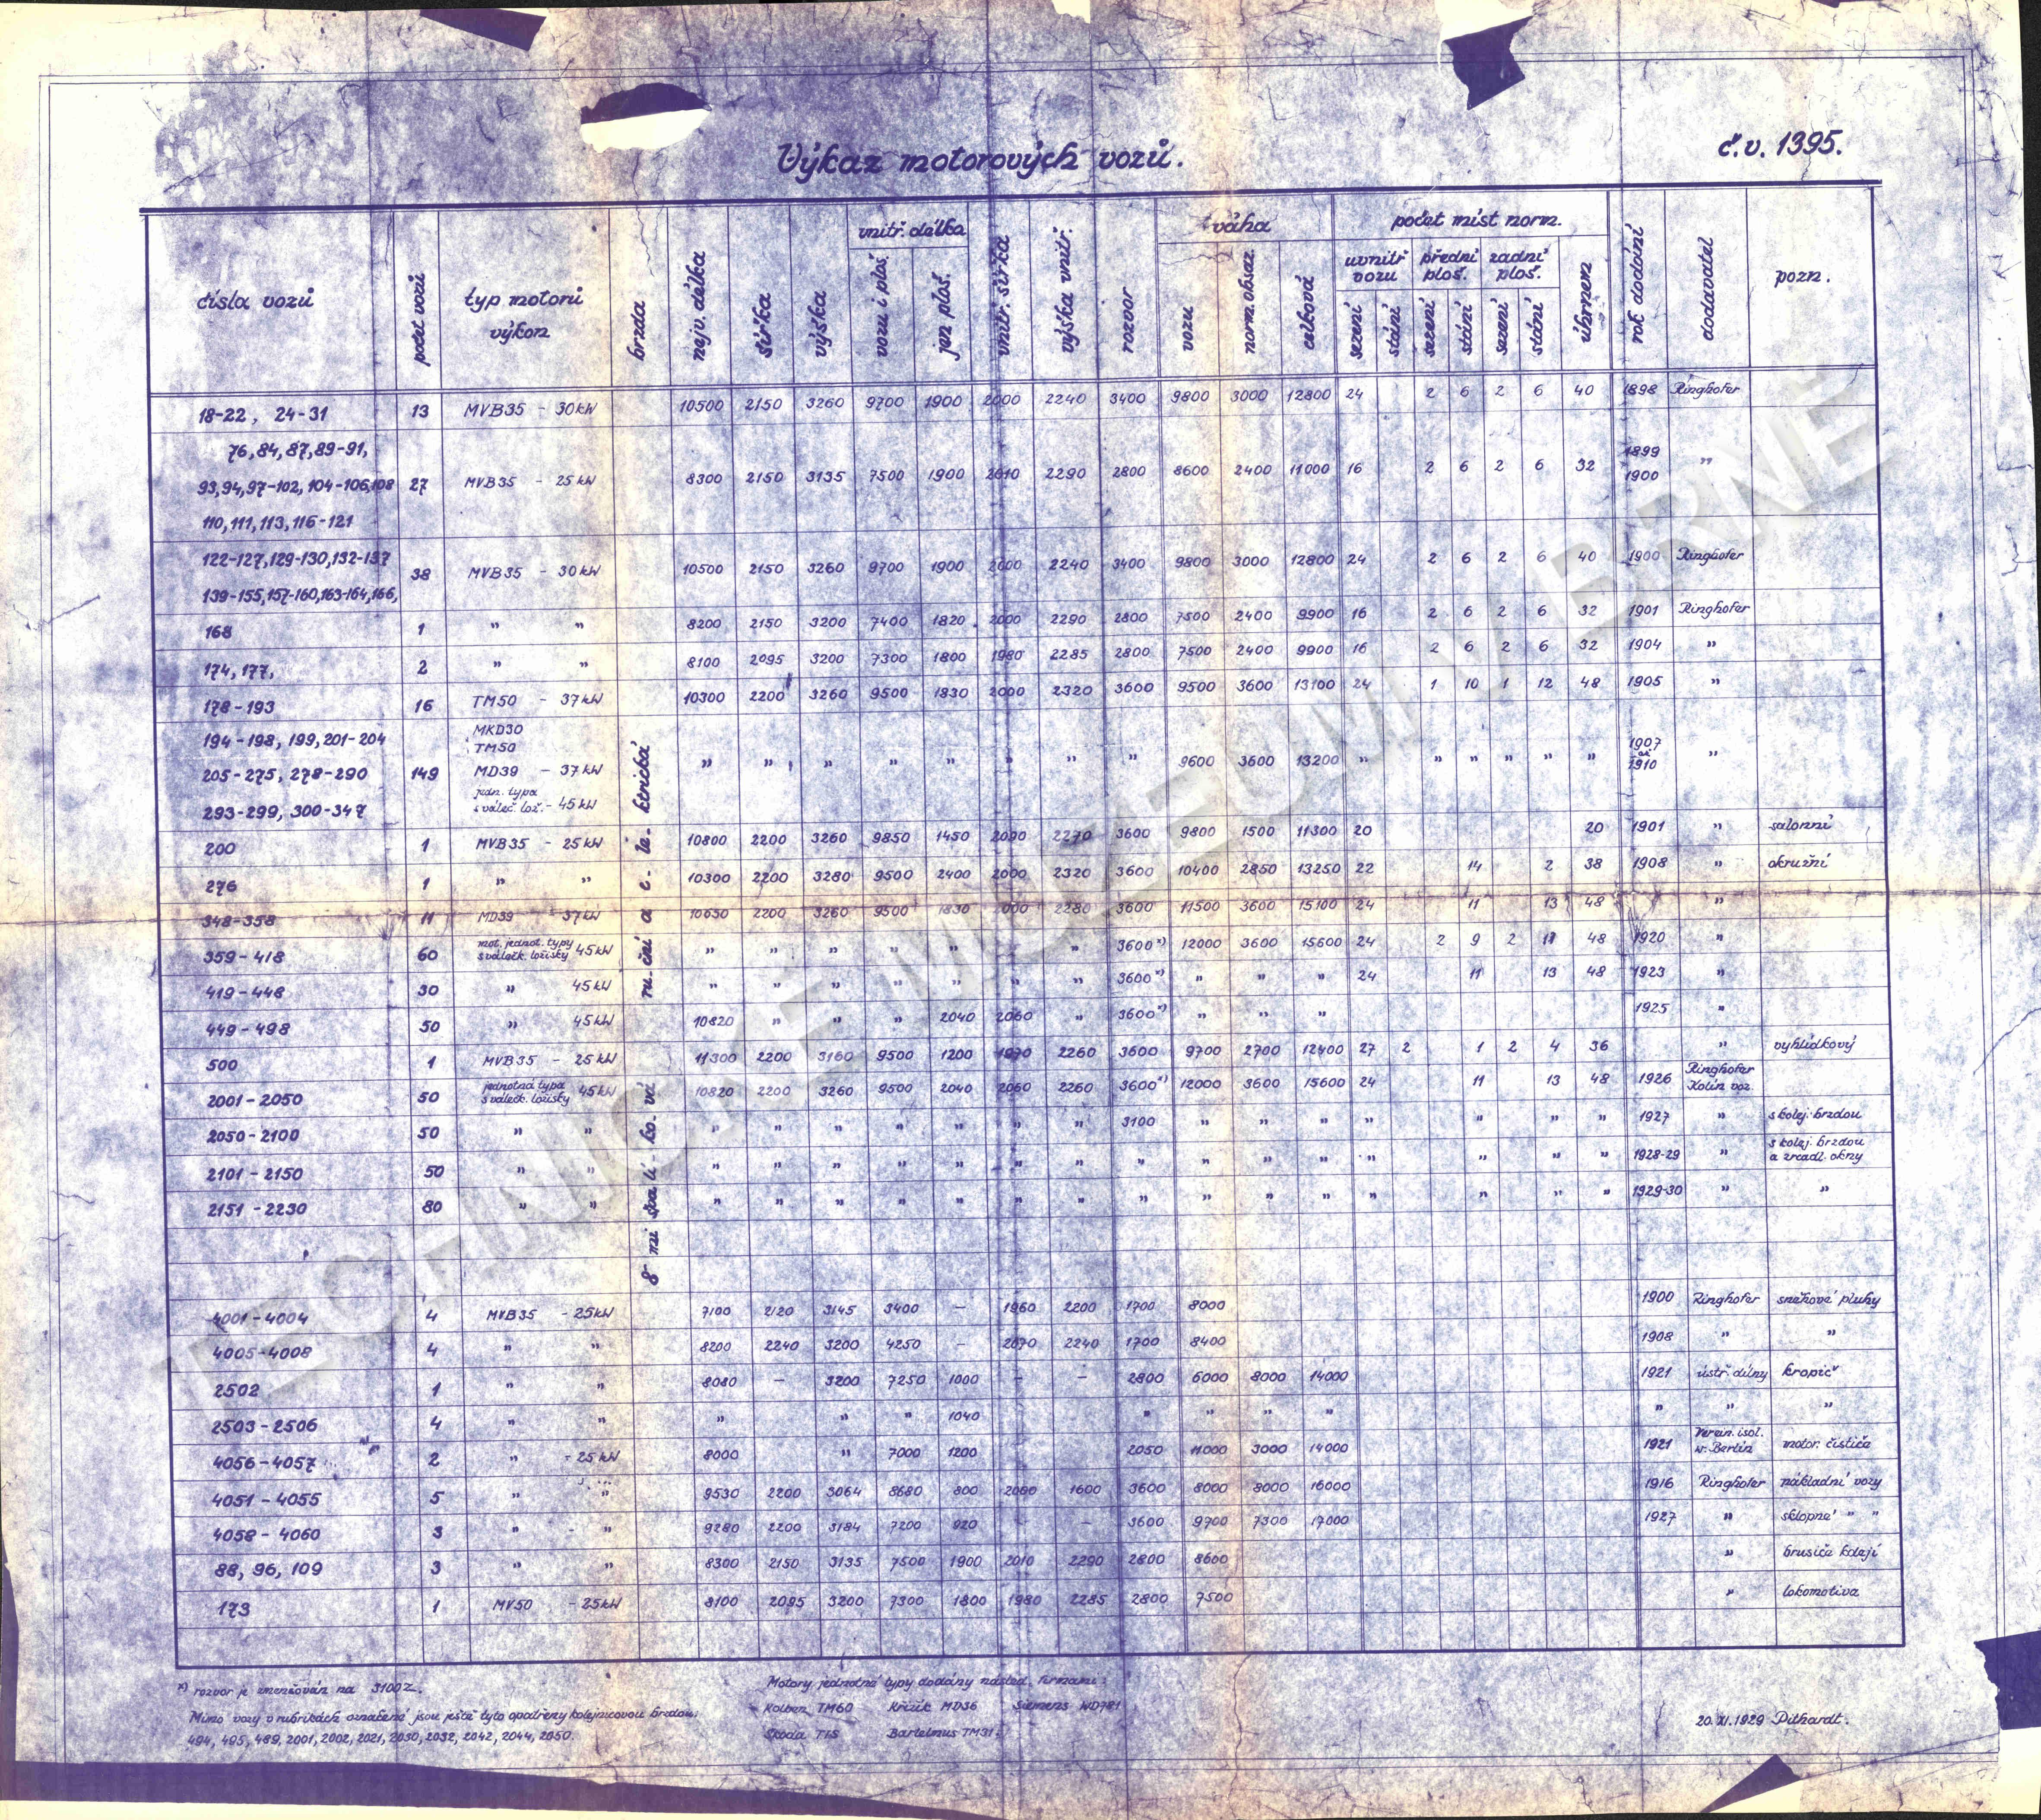 Výkaz motorových vozů.
č.v. 1395.
čísla vozů
počet vozů
typ motorů
výkon
brzda
nejv. délka
šířka
výška
vnitř. délka
vozu i ploš.
jen ploš.
vnitř. šířka
výška vnitř.
rozvor
váha
vozu
norm. obsaz.
celková
počet míst norm.
uvnitř vozu
přední ploš.
zadní ploš.
sezení
stání
sezení
stání
sezení
stání
úhrnem
rok dodání
dodavatel
pozn.
18-22, 24-31 13 MVB35 - 30kW 10500 2150 3260 9700 1900 2000 2240 3400 9800 3000 12800 24 2 6 2 6 40 1898 Ringhofer
76,84,87,89-91,
93,94,97-102,104-106,108 27 MVB35 - 25kW 8300 2150 3135 7500 1900 2010 2290 2800 8600 2400 11000 16 2 6 2 6 32 1899 1900 "
110,111,113,116-121
122-127,129-130,132-137 38 MVB35 - 30kW 10500 2150 3260 9700 1900 2000 2240 3400 9800 3000 12800 24 2 6 2 6 40 1900 Ringhofer
139-155,157-160,163-164,166,
168 1 " " 8200 2150 3200 7400 1820 2000 2290 2800 7500 2400 9900 16 2 6 2 6 32 1901 Ringhofer
174, 177, 2 " " 8100 2095 3200 7300 1800 1980 2285 2800 7500 2400 9900 16 2 6 2 6 32 1904 "
178-193 16 TM50 - 37kW 10300 2200 3260 9500 1830 2000 2320 3600 9500 3600 13100 24 1 10 1 12 48 1905 "
194-198, 199, 201-204 MKD30
TM50
205-275, 278-290 149 MD39 - 37kW " " " " " " " " 9600 3600 13200 " " " " " " 1907 až 1910 "
293-299, 300-347 jedn. typa s váleč. lož. - 45kW
200 1 MVB35 - 25kW 10800 2200 3260 9850 1450 2000 2270 3600 9800 1500 11300 20 20 1901 " salonní
276 1 " " 10300 2200 3280 9500 2400 2000 2320 3600 10400 2850 13250 22 14 2 38 1908 " okružní
348-358 11 MD39 37kW 10650 2200 3260 9500 1830 2000 2280 3600 11500 3600 15100 24 11 13 48 "
359-418 60 mot. jednot. typy s válečk. ložisky 45kW " " " " " " 3600x) 12000 3600 15600 24 2 9 2 11 48 1920 "
419-448 30 " 45kW " " " " " " " 3600x) " " " 24 11 13 48 1923 "
449-498 50 " 45kW 10820 " " " 2040 2060 " 3600x) " " " 1925 "
500 1 MVB35 - 25kW 11300 2200 3160 9500 1200 1970 2260 3600 9700 2700 12400 27 2 1 2 4 36 " vyhlídkový
2001-2050 50 jednotná typa s válečk. ložisky 45kW 10820 2200 3260 9500 2040 2060 2260 3600x) 12000 3600 15600 24 11 13 48 1926 Ringhofer Kolín voz.
2050-2100 50 " " " " " " " " " 3100 " " " " " " " 1927 " s kolej. brzdou
2101-2150 50 " " " " " " " " " " " " " " " " " 1928-29 " s kolej. brzdou a zrcadl. okny
2151-2230 80 " " " " " " " " " " " " " " " " " 1929-30 " "
ru-ční a e-le-ktrická
8 mi špa lí-ko-vá
4001-4004 4 MVB35 - 25kW 7100 2120 3145 3400 — 1960 2200 1700 8000 1900 Ringhofer sněhové pluhy
4005-4008 4 " " 8200 2240 3200 4250 — 2070 2240 1700 8400 1908 " "
2502 1 " " 8080 — 3200 7250 1000 — — 2800 6000 8000 14000 1921 ústř. dílny kropič
2503-2506 4 " " " " " 1040 " " " " " " "
4056-4057 2 " - 25kW 8000 " 7000 1200 2050 11000 3000 14000 1921 Verein. isol. w. Berlin motor. čističe
4051-4055 5 " " 9530 2200 3064 8680 800 2060 1600 3600 8000 8000 16000 1916 Ringhofer nákladní vozy
4058-4060 3 " - " 9280 2200 3184 7200 920 — — 3600 9700 7300 17000 1927 " sklopné " "
88, 96, 109 3 " " 8300 2150 3135 7500 1900 2010 2290 2800 8600 " brusiče kolejí
173 1 MV50 - 25kW 8100 2095 3200 7300 1800 1980 2285 2800 7500 " lokomotiva
x) rozvor je zmenšován na 3100Z.
Mimo vozy v rubrikách označené jsou ještě tyto opatřeny kolejnicovou brzdou:
494, 495, 489, 2001, 2002, 2021, 2030, 2032, 2042, 2044, 2050.
Motory jednotné typy dodány násled. firmami:
Kolben TM60 Křižík MD36 Siemens WD781
Škoda T15 Bartelmus TM31.
20. XI. 1929 Pithardt.
TECHNICKÉ MUZEUM V BRNĚ